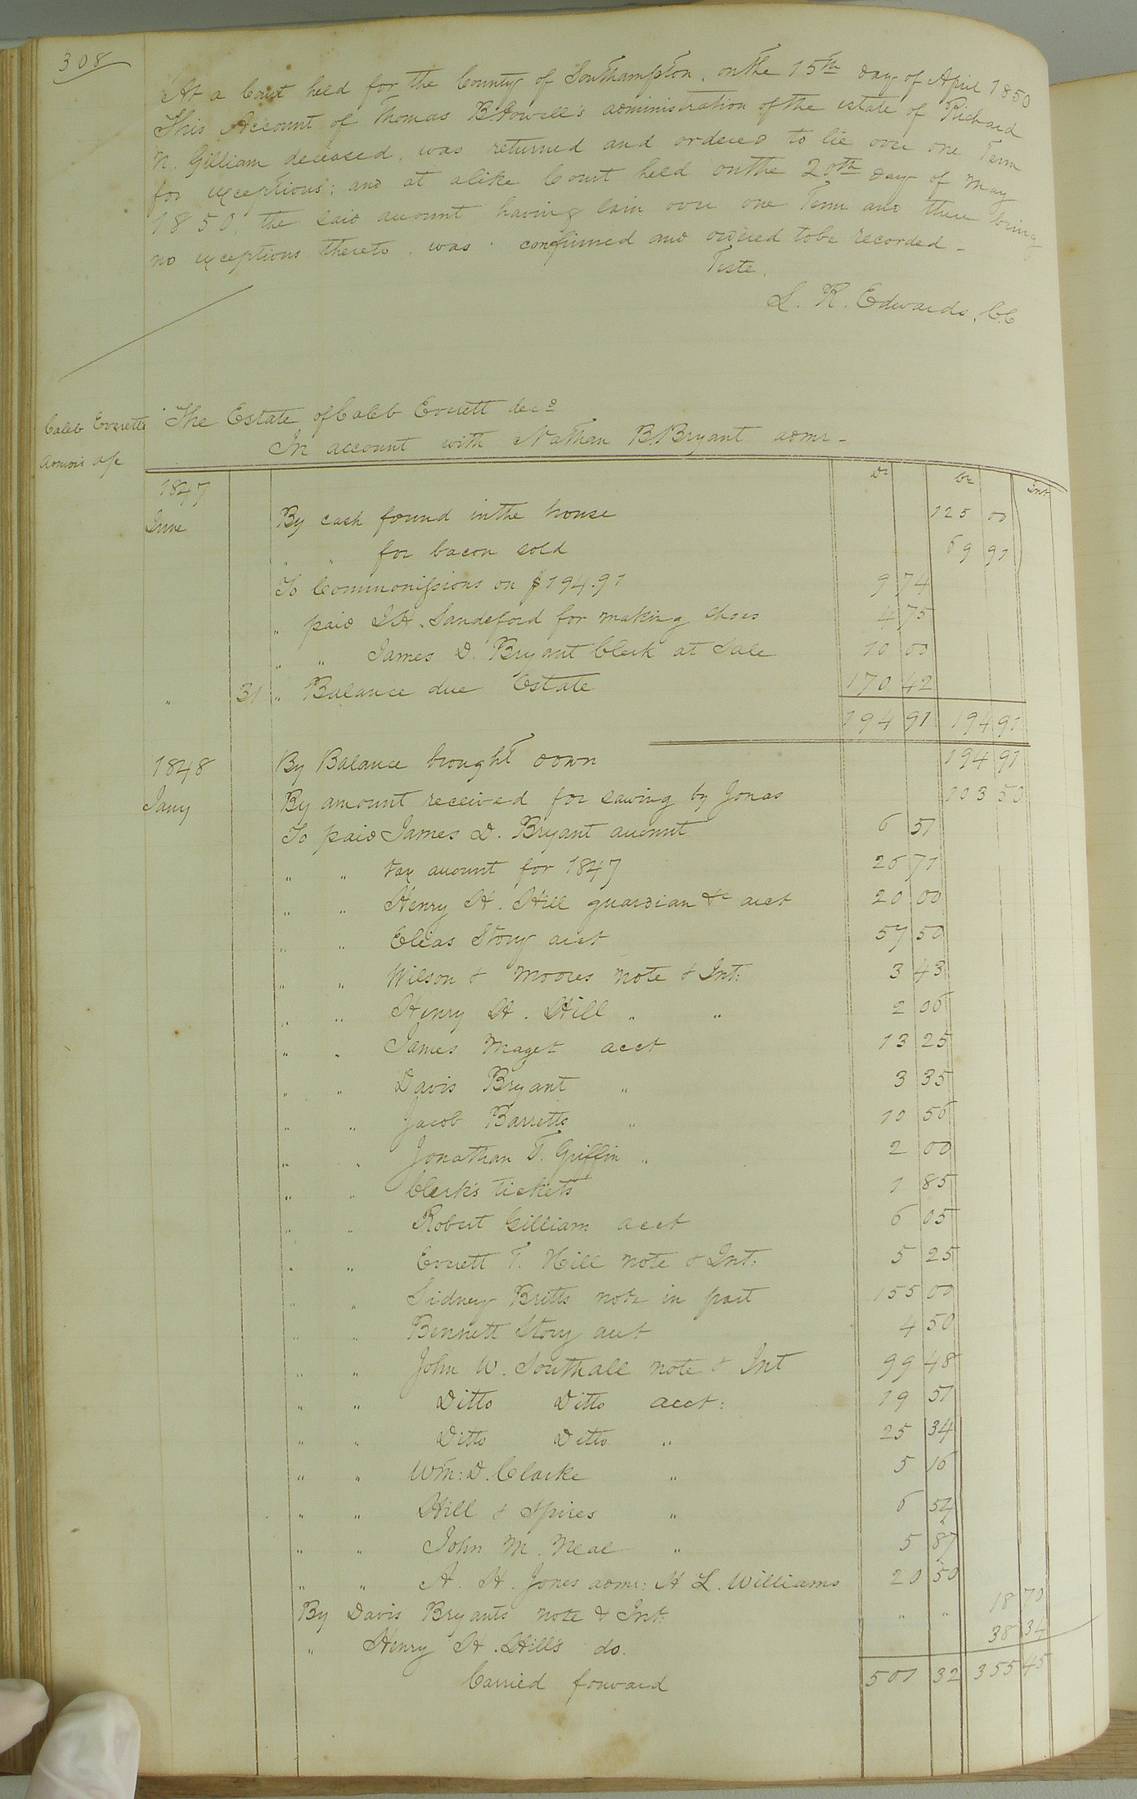 308
At a Court held for the County of Southampton, on the 15th day of April 1850
This Account of Thomas B Howell's administration of the estate of Richard
N. Gilliam deceased, was returned and ordered to lie over one Term
for exceptions; and at alike Court held on the 20th day of May
1850, the said account having lain over one Term and there being
no exceptions thereto, was confirmed and ordered to be recorded -
Teste,
L. R. Edwards, C.C
Caleb Everetts
Admors a/c
The Estate of Caleb Everett decd
In account with Nathan B Bryant admr -
Dr Cr Int
1847
June By cash found in the house 125 00
" " for bacon sold 69 91
To Commonissions on $194.91 9 74
" paid J.H. Sandeford for making shoes 4 75
" " James D. Bryant Clerk at Sale 10 00
" 31 " Balance due Estate 170 42
194 91 194 91
1848 By Balance brought down 194 91
Jany By amount received for sawing by Jonas 103 50
To paid James D. Bryant account 6 51
" " tax account for 1847 26 71
" " Henry H. Hill guardian &c acct 20 00
" " Elias Story acct 57 50
" " Wilson & Moores note & Int: 3 43
" " Henry H. Hill " " 2 06
" " James Maget acct 13 25
" " Davis Bryant " 3 35
" " Jacob Barretts " 10 56
" " Jonathan T. Griffin " 2 00
" " Clerk's tickets 1 85
" " Robert Gilliam acct 6 05
" " Everett T. Hill note & Int: 5 25
" " Sidney Britts note in part 155 00
" " Bennett Story acct 4 50
" " John W. Southall note & Int 99 48
" " Ditto Ditto acct: 19 51
" " Ditto Ditto " 25 34
" " Wm: D. Clarke " 5 16
" " Hill & Spires " 6 54
" " John M. Neal " 5 87
" " A. H. Jones admr: H L. Williams 20 50
By Davis Bryants note & Int: " " 18 70
" Henry H. Hills do. 38 34
Carried forward 501 32 355 45